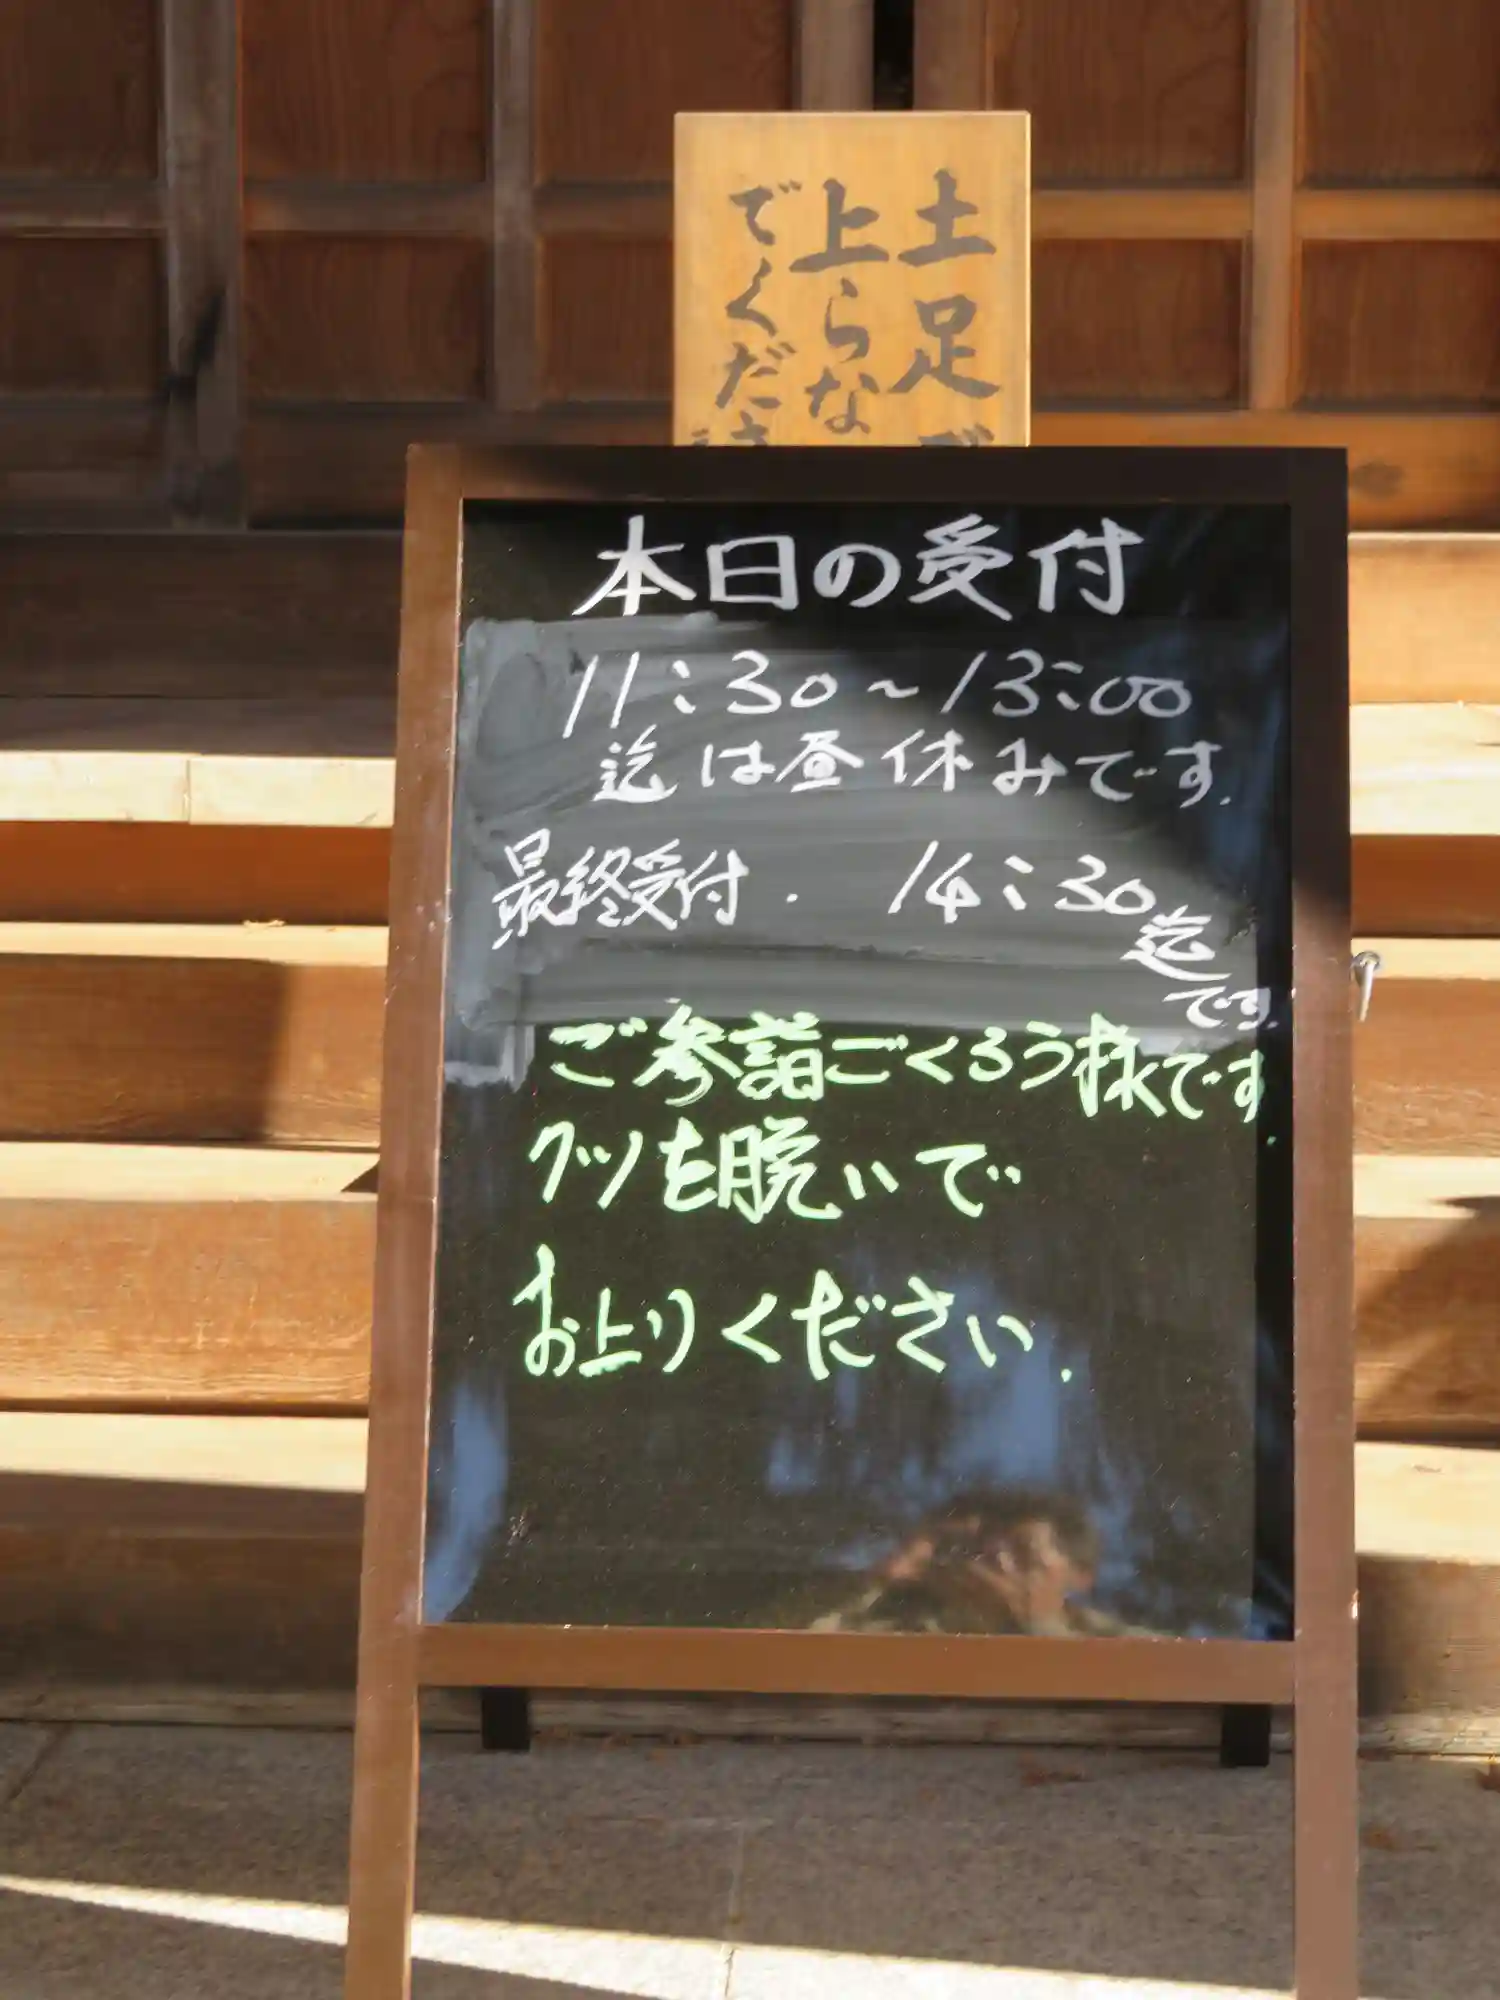 土足で
上らな
でくださ
本日の受付
11:30~13:00
迄は昼休みです.
最終受付. 14:30迄
です.
ご参詣ごくろう様です.
クツを脱いで
お上りください.